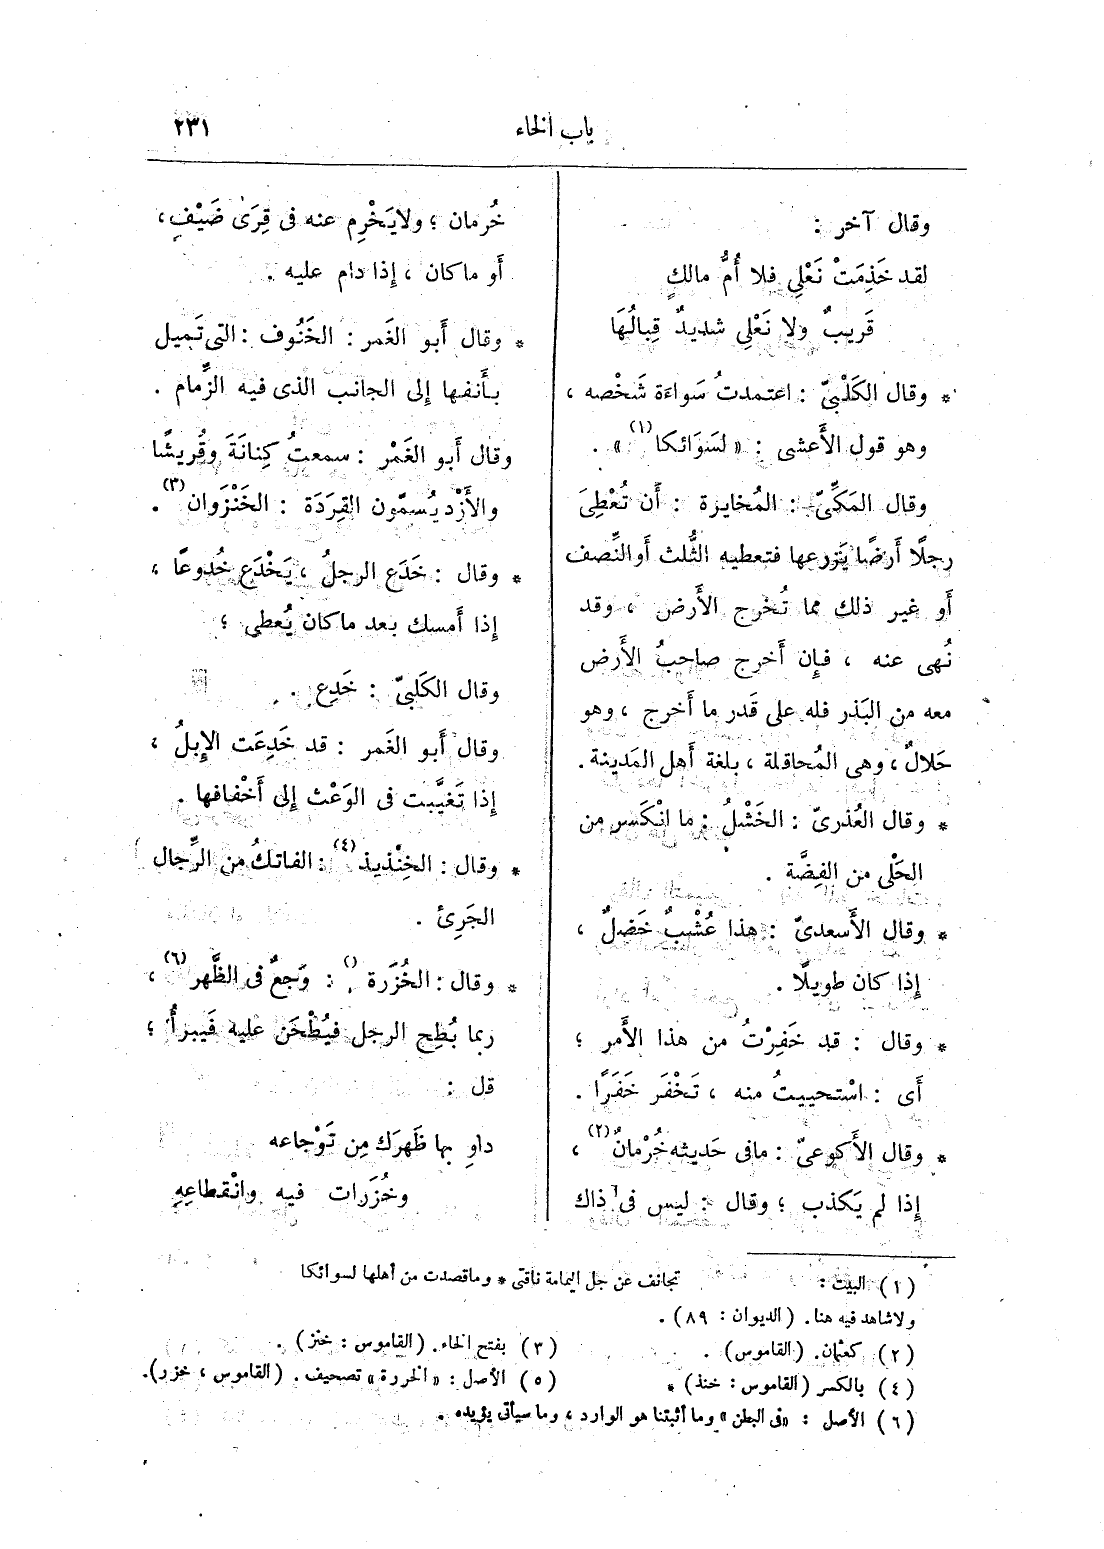 باب الخاء
٢٣١
وقال آخر :
لقد خَذِمَتْ نَعْلِى فلا أُمُّ مالكٍ
قَرِيبٌ ولا نَعْلِى شديدٌ قِبالُهَا
* وقال الكَلْبىّ : اعتمدتُ سَواءَة شَخْصه ،
وهو قول الأَعشى : « لسَوَائكا(١) » .
وقال المَكِّىّ : المُخايرة : أَن تُعْطِىَ
رجلًا أَرضًا يَتزرعها فتعطيه الثُّلث أَوالنِّصف
أَو غير ذلك مما تُخرج الأَرض ، وقد
نُهى عنه ، فإِن أَخرج صاحبُ الأَرض
معه من البَذر فله على قَدر ما أَخرج ، وهو
حَلالٌ ، وهى المُحاقلة ، بلغة أهل المَدينة .
* وقال العُذرىّ : الخَشْلُ : ما انْكَسر من
الحَلْى من الفِضَّة .
* وقال الأَسعدىّ : هذا عُشْبٌ خَضِلٌ ،
إِذا كان طويلًا .
* وقال : قد خَفِرْتُ من هذا الأَمر ؛
أَى : اسْتحييتُ منه ، تَخْفَر خَفَرًا .
* وقال الأَكوعىّ : مافى حَديثه خُرْمانٌ(٢) ،
إِذا لم يَكذب ؛ وقال : ليس فى ذاك
خُرمان ؛ ولايَخْرِم عنه فى قِرَى ضَيْفٍ ،
أَو ماكان ، إِذا دام عليه .
* وقال أَبو الغَمر : الخَنُوف : التى تَميل
بأَنفها إِلى الجانب الذى فيه الزِّمام .
وقال أَبو الغَمْر : سمعتُ كِنانَةَ وقُريشًا
والأَزْد يُسمّون القِرَدَة : الخَنْزَوان(٣) .
* وقال : خَدَع الرجلُ ، يَخْدَع خُدوعًا ،
إِذا أَمسك بعد ماكان يُعطى ؛
وقال الكَلبىّ : خَدِع .
وقال أَبو الغَمر : قد خَدِعَت الإِبلُ ،
إِذا تَغيَّبت فى الوَعْث إِلى أَخْفافها .
* وقال : الخِنْذيذ(٤) : الفاتكُ من الرِّجال
الجَرِئ .
* وقال : الخُزَرة () : وَجعٌ فى الظَّهر(٦) ،
ربما بُطِح الرجل فيُطْحَن عليه فَيبرأُ ؛
قل :
داوِ بها ظَهرَك مِن تَوْجاعه
وخُزَرات فيه وانْقطاعِهِ
(١) البيت : تجانف عن جل اليمامة ناقتى * وماقصدت من أهلها لسوائكا
ولاشاهد فيه هنا. (الديوان : ٨٩) .
(٢) كعثمان. (القاموس) . (٣) بفتح الخاء. (القاموس : خنز) .
(٤) بالكسر (القاموس : خنذ) * (٥) الأصل : «الخررة» تصحيف . (القاموس ، خزر).
(٦) الأصل : «فى البطن» وما أثبتنا هو الوارد ، وما سيأتى يؤيده .